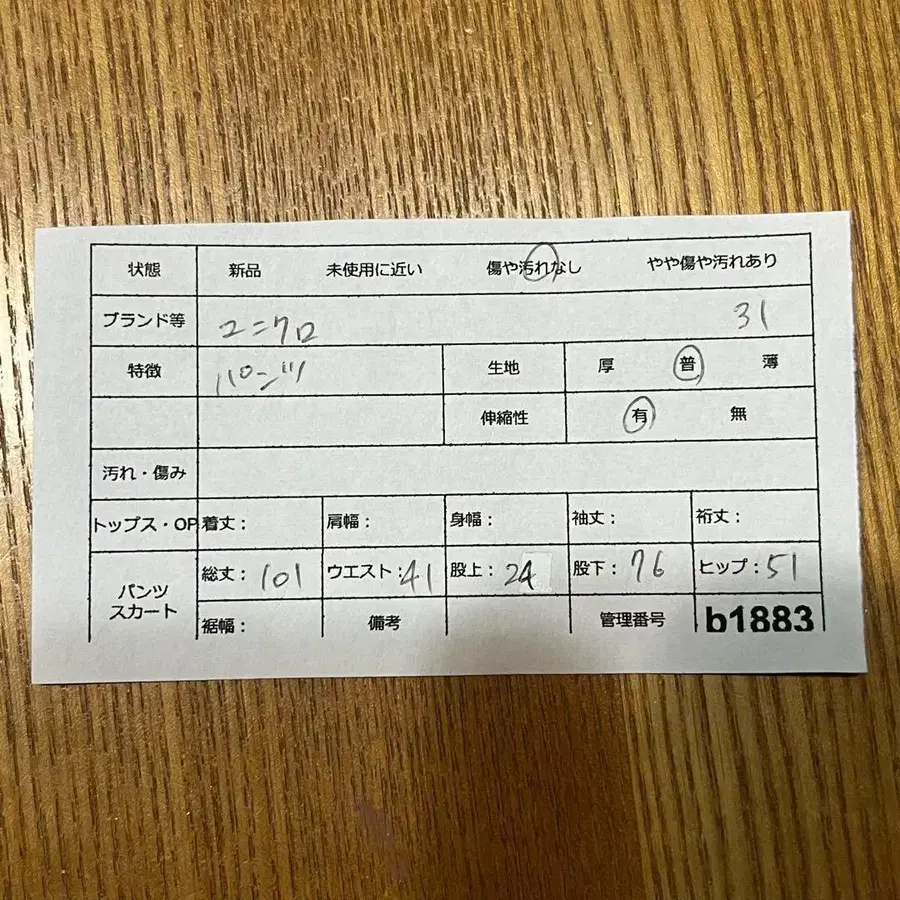 状態 新品 未使用に近い 傷や汚れなし やや傷や汚れあり
ブランド等 ユニクロ 31
特徴 パンツ 生地 厚 普 薄
伸縮性 有 無
汚れ・傷み
トップス・OP 着丈： 肩幅： 身幅： 袖丈： 裄丈：
パンツ スカート 総丈：101 ウエスト：41 股上：24 股下：76 ヒップ：51
裾幅： 備考 管理番号 b1883